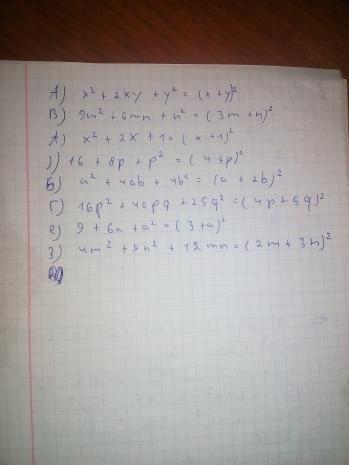 А) x² + 2xy + y² = (x+y)²
В) 9m² + 6mn + n² = (3m+n)²
Д) x² + 2x + 1 = (x+1)²
) 16 + 8p + p² = (4+p)²
Б) a² + 4ab + 4b² = (a + 2b)²
Г) 16p² + 40pq + 25q² = (4p+5q)²
е) 9 + 6a + a² = (3+a)²
З) 4m² + 9n² + 12mn = (2m + 3n)²